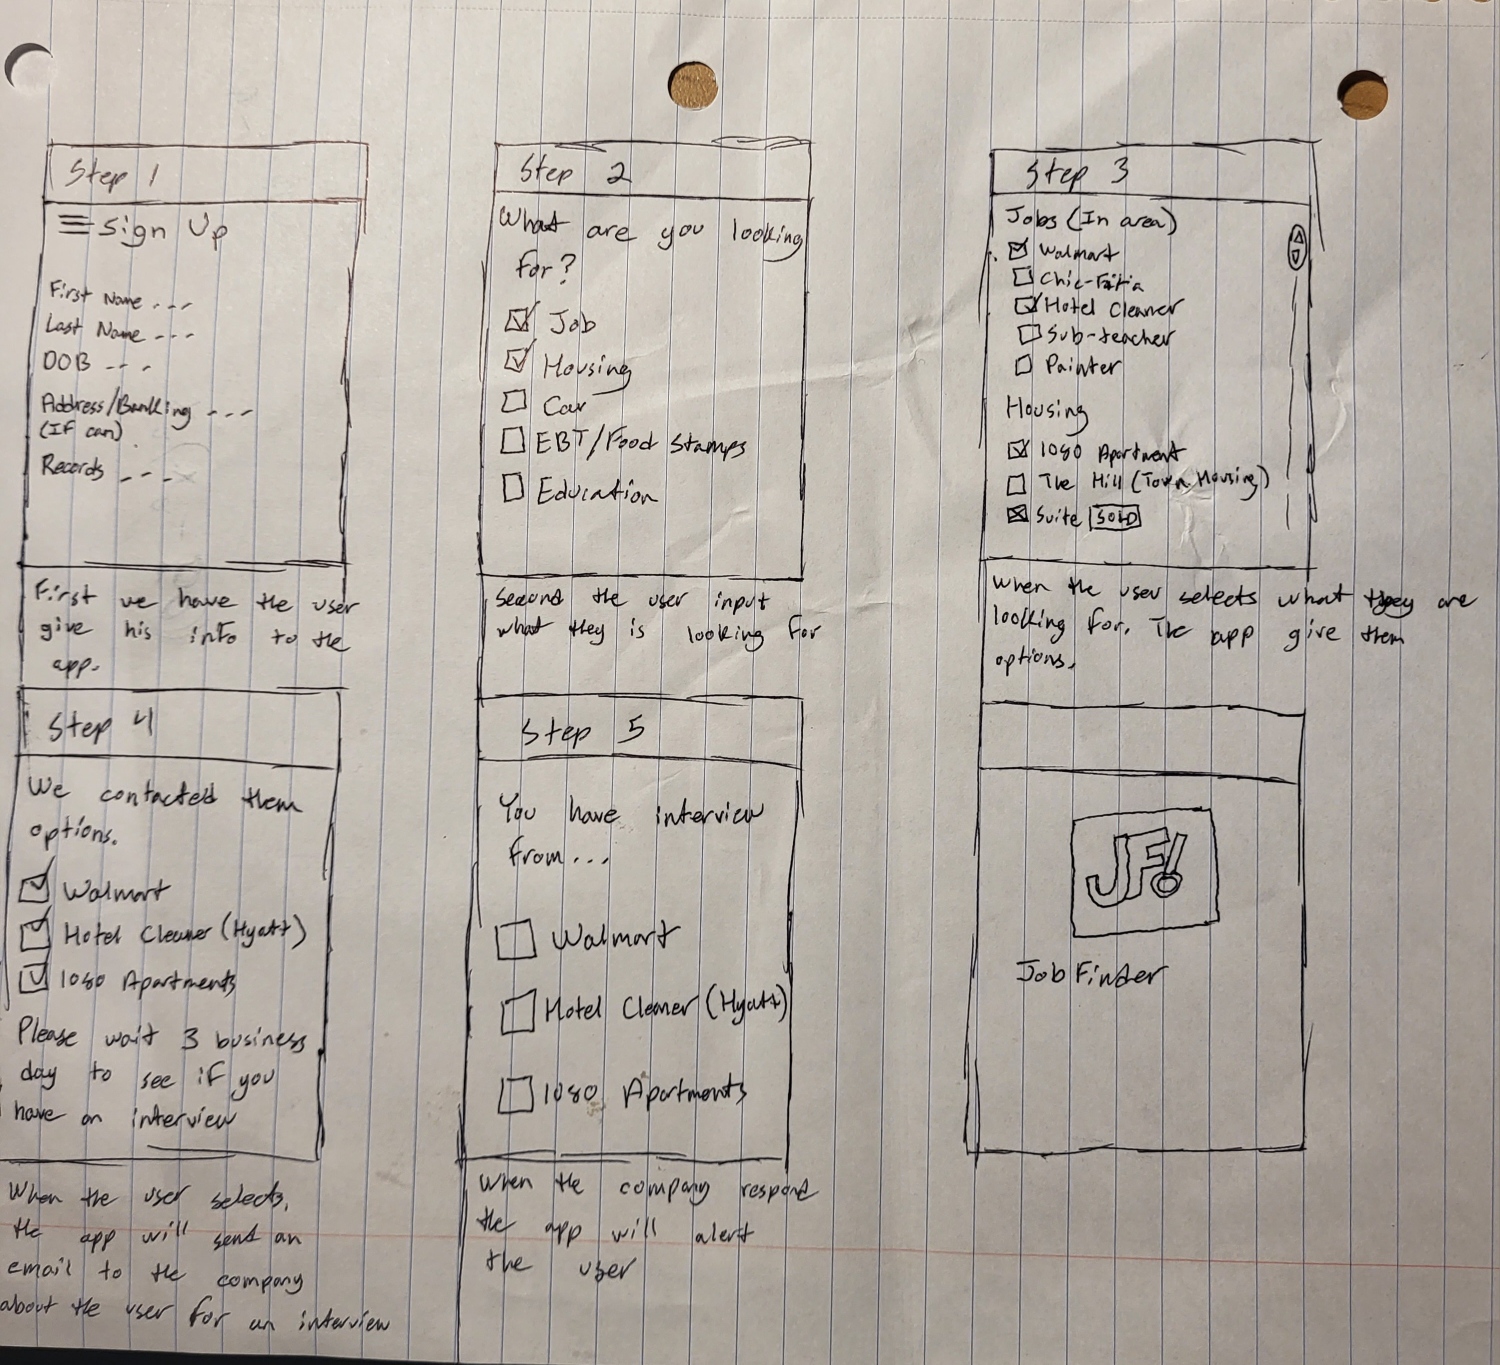 Step 1
Sign Up
First Name ---
Last Name ---
DOB ---
Address/Banking ---
(If can)
Records ---
First we have the user
give his info to the
app.
Step 2
What are you looking
for?
Job
Housing
Car
EBT/Food Stamps
Education
Second the user input
what they is looking for
Step 3
Jobs (In area)
Walmart
Hotel Cleaner
Sub-teacher
Painter
Housing
1080 Apartment
The Hill (Town Housing)
Suite SOLD
When the user selects what they are
looking for. The app give them
options.
Step 4
We contacted them
options.
Walmart
Hotel Cleaner (Hyatt)
1080 Apartments
Please wait 3 business
day to see if you
have an interview
When the user selects,
the app will send an
email to the company
about the user for an interview
Step 5
You have interview
from...
Walmart
Hotel Cleaner (Hyatt)
1080 Apartments
When the company respond
the app will alert
the user
JF!
Job Finder